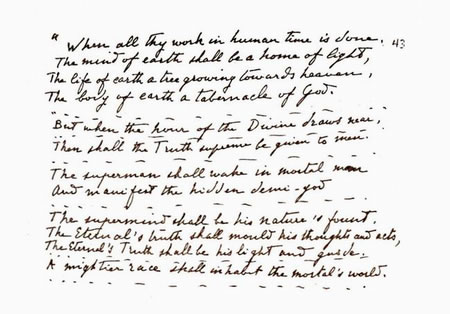 "When all thy work in human time is done. 43
The mind of earth shall be a home of light,
The life of earth a tree growing towards heaven,
The body of earth a tabernacle of God.
"But when the hour of the Divine draws near,
Then shall the Truth supreme be given to men.
The superman shall wake in mortal man
And manifest the hidden demi-god
The supermind shall be his nature's fount.
The Eternal's truth shall mould his thoughts and acts,
The Eternal's Truth shall be his light and guide.
A mightier race shall inhabit the mortal's world.